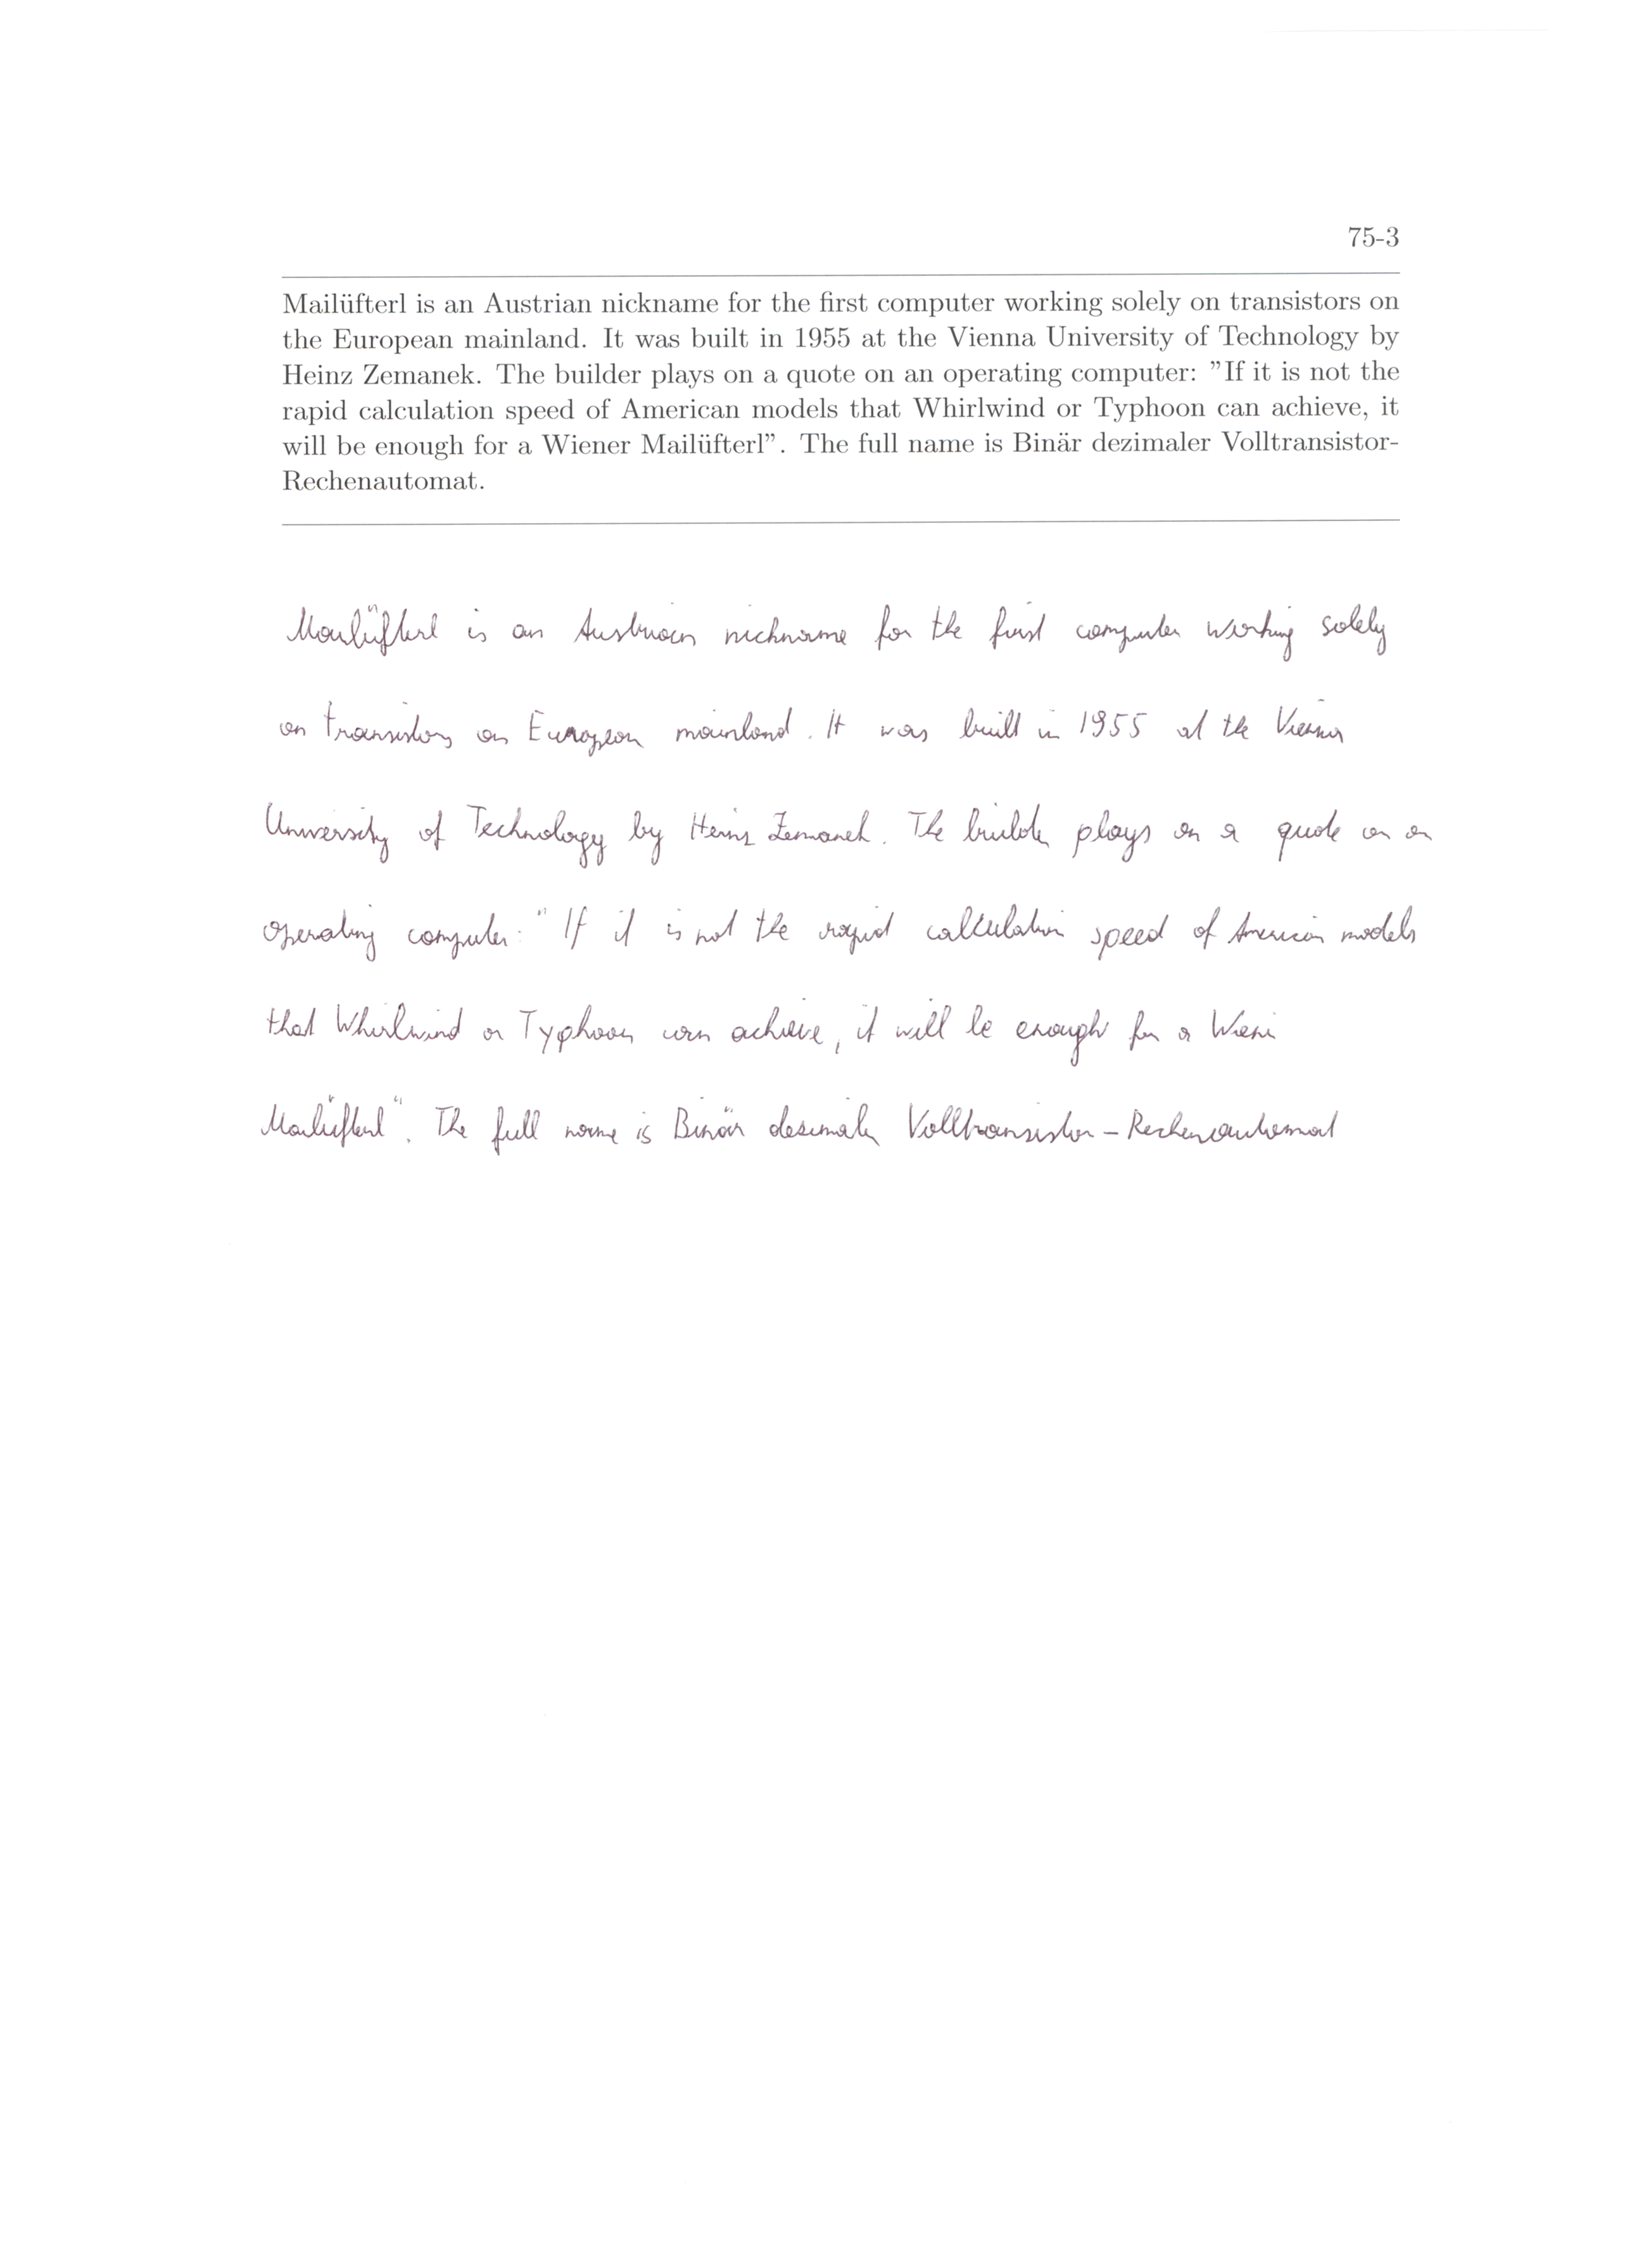 75-3
Mailüfterl is an Austrian nickname for the first computer working solely on transistors on
the European mainland. It was built in 1955 at the Vienna University of Technology by
Heinz Zemanek. The builder plays on a quote on an operating computer: ”If it is not the
rapid calculation speed of American models that Whirlwind or Typhoon can achieve, it
will be enough for a Wiener Mailüfterl”. The full name is Binär dezimaler Volltransistor-
Rechenautomat.
Mailüfterl is an Austrian nickname for the first computer working solely
on transistors on European mainland. It was built in 1955 at the Vienna
University of Technology by Heinz Zemanek. The builder plays on a quote on an
operating computer: "If it is not the rapid calculation speed of American models
that Whirlwind or Typhoon can achieve, it will be enough for a Wiener
Mailüfterl". The full name is Binär dezimaler Volltransistor-Rechenautomat